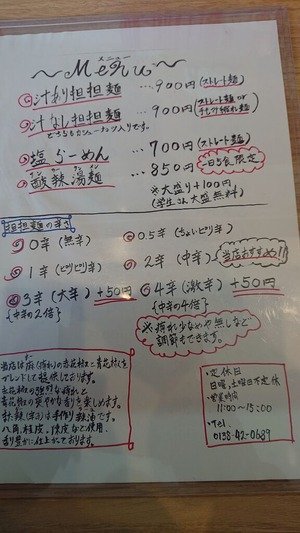 メニュー
～Menu～
汁あり担担麺 …900円(ストレート麺)
汁なし担担麺 …900円(ストレート麺or
どちらもカシューナッツ入りです。
塩らーめん …700円(ストレート麺)
酸辣湯麺 …850円 一日5食限定
※大盛り+100円
(学生さん大盛無料)
担担麺の辛さ
0辛(無辛) 0.5辛(ちょいピリ辛)
1辛(ピリピリ辛) 2辛(中辛) 当店おすすめ!!
3辛(大辛)+50円 4辛(激辛)+50円
{中辛の2倍} {中辛の4倍}
※痺れ少なめや無しなど
調節もできます。
当店は麻(痺れ)の赤花椒と青花椒を
ブレンドして提供しております。
赤花椒の強烈な痺れと
青花椒の爽やかな香りを楽しめます。
辣(辛さ)は手作り辣油です。
八角、桂皮、陳皮など使用、
香り豊かに仕上げております。
・定休日
日曜、土曜日不定休
・営業時間
11:00～15:00
・Tel.
0138-42-0689